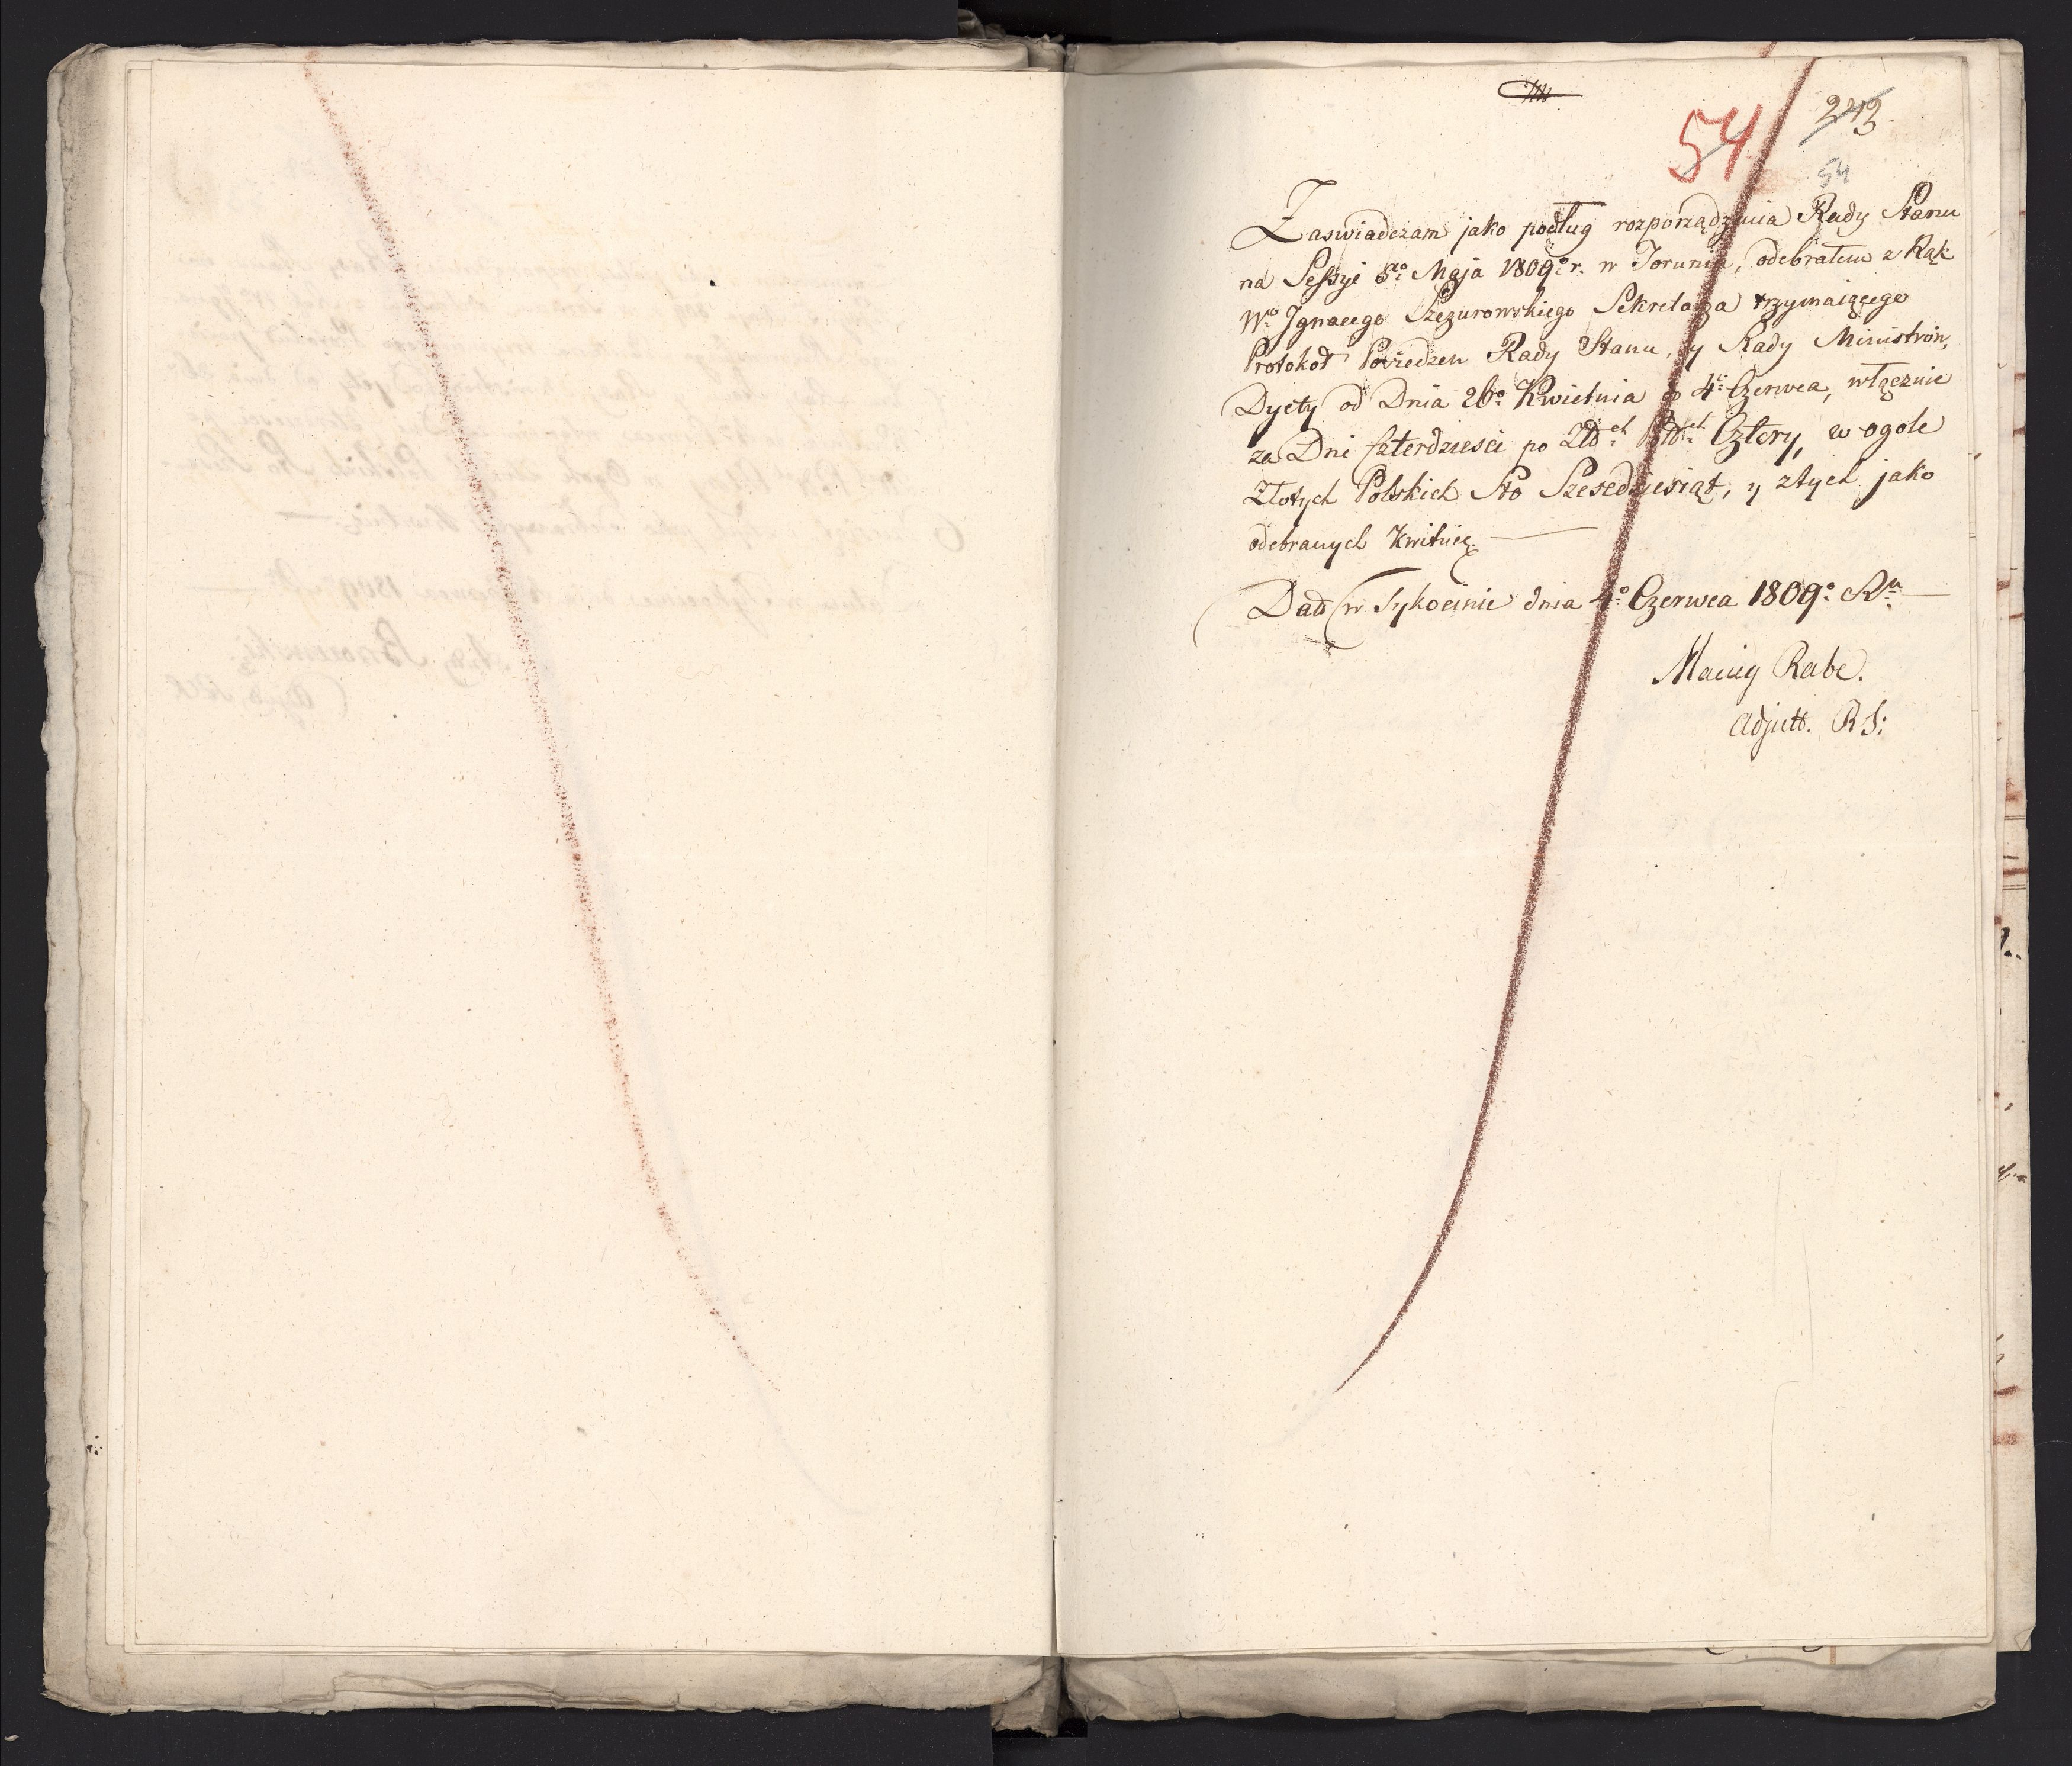 54
243
54
Zaswiadczam jako podług rozporządzenia Rady Stanu
na Sessyi 5go Maja 1809o r. w Toruniu, odebrałem z Rąk
Wo Ignacego Szczurowskiego Sekretarza trzymaiącego
Protokoł Posiedzen Rady Stanu, y Rady Ministrow,
Dyety od Dnia 26o Kwietnia do 4o Czerwca, włącznie
za Dni czterdziesci po Złch Polch Cztery, w ogole
Złotych Polskich Sto Szescdziesiąt, y ztych jako
odebranych Kwituię.
Dad w Tykocinie dnia 4o Czerwca 1809o Ru
Maciey Rabe.
Adjutt. R S: